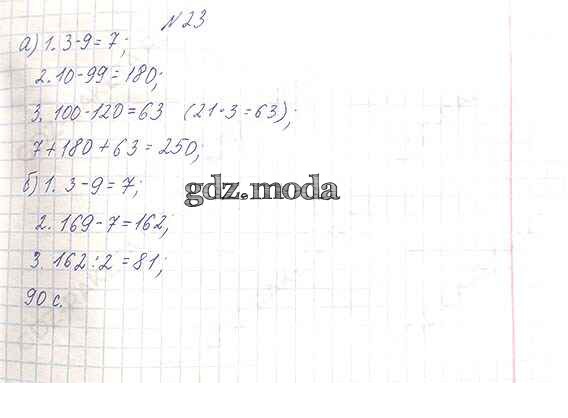 №23
а) 1. 3-9=7;
2. 10-99=180;
3. 100-120=63 (21·3=63);
7+180+63=250;
б) 1. 3-9=7;
gdz.moda
2. 169-7=162;
3. 162:2=81;
90 с.